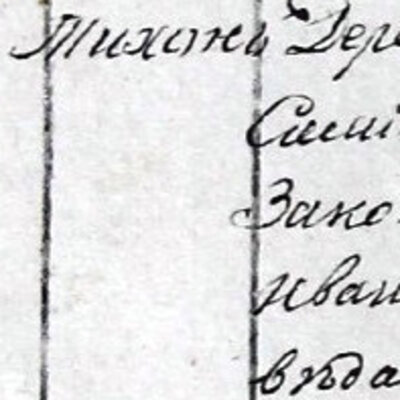 Тихонъ Дере
Сели
Зако
Иван
вѣда